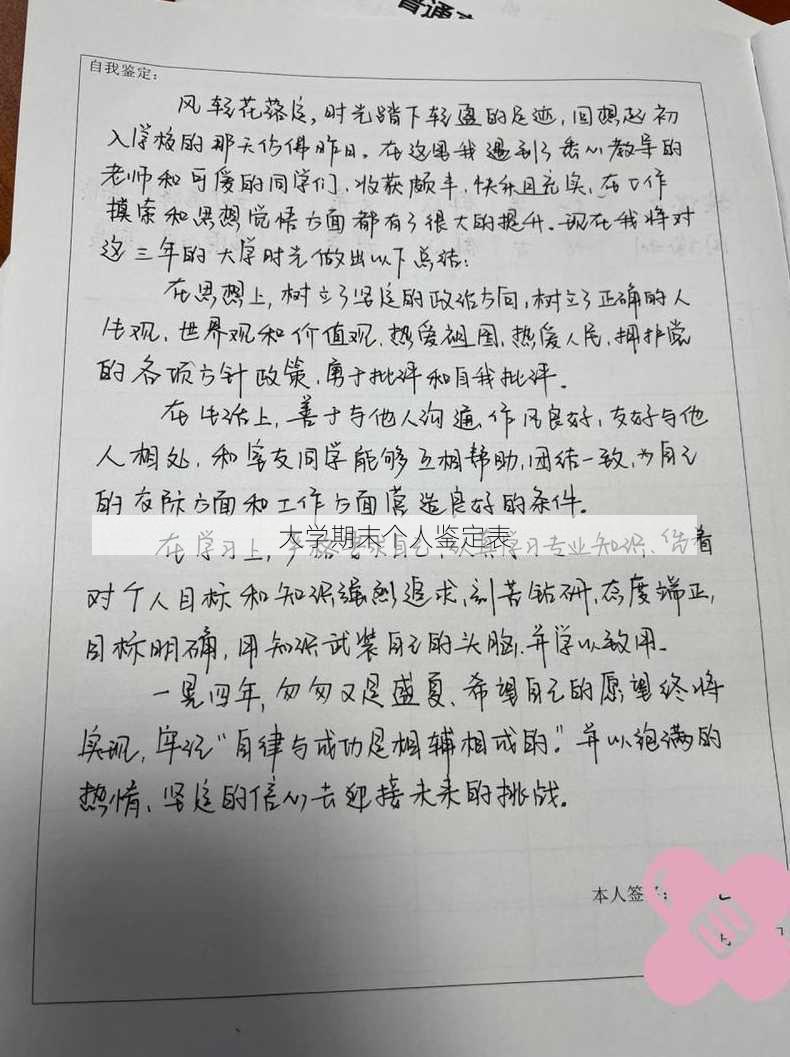 普通
自我鉴定：
风轻花落定，时光踏下轻盈的足迹，回想起初
入学校的那天仿佛昨日。在这里我遇到了悉心教导的
老师和可爱的同学们，收获颇丰，快乐且充实，在工作
摸索和思想觉悟方面都有了很大的提升。现在我将对
这三年的大学时光做出以下总结：
在思想上，树立了坚定的政治方向，树立了正确的人
生观、世界观和价值观，热爱祖国，热爱人民，拥护党
的各项方针政策，勇于批评和自我批评。
在生活上，善于与他人沟通，作风良好，友好与他
人相处，和室友同学能够互相帮助，团结一致，为自己
的交际方面和工作方面营造良好的条件。
大学期末个人鉴定表
在学习上，严格要求自己，认真学习专业知识，
对个人目标和知识强烈追求，刻苦钻研，态度端正，
目标明确，用知识武装自己的头脑，并学以致用。
一晃四年，匆匆又是盛夏、希望自己的愿望终将
实现，牢记“自律与成功是相辅相成的。”并以饱满的
热情、坚定的信心去迎接未来的挑战。
本人签